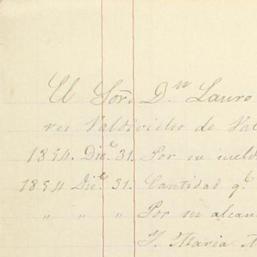 El Sor. Dn Lauro
res Valdivieso de Val
1854. Dice. 31. Por su sueld
1854 Dice. 31. Cantidad q.
" " " Por su alcan
J. Maria